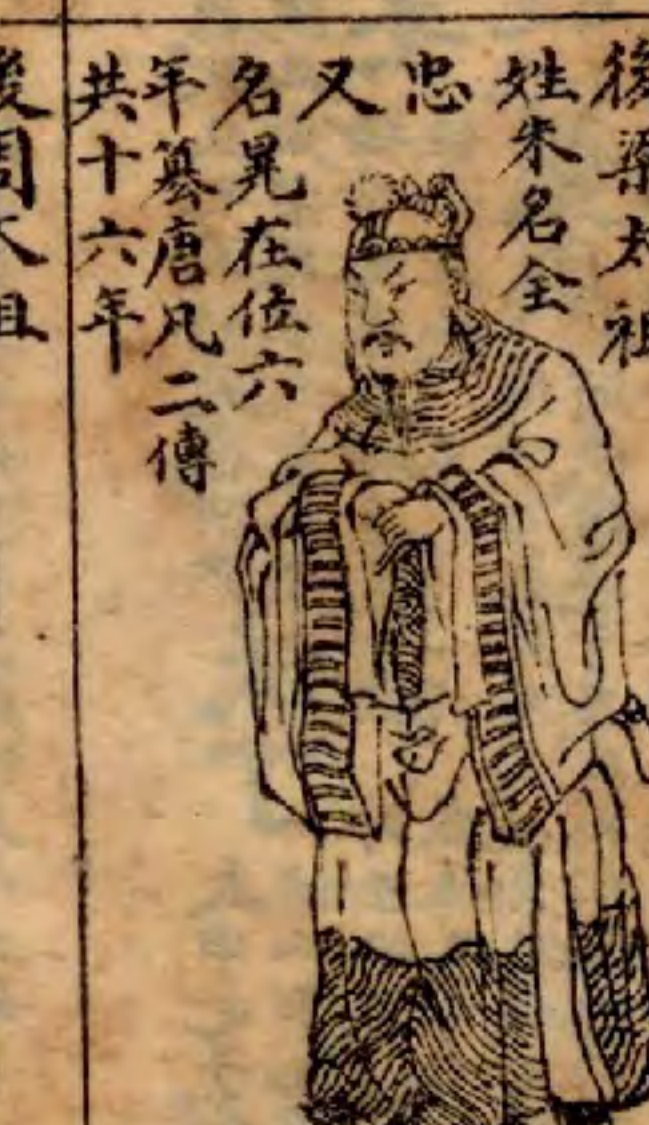 後梁太祖
姓朱名全
忠
又
名晃在位六
年簒唐凡二傳
共十六年
後周太祖